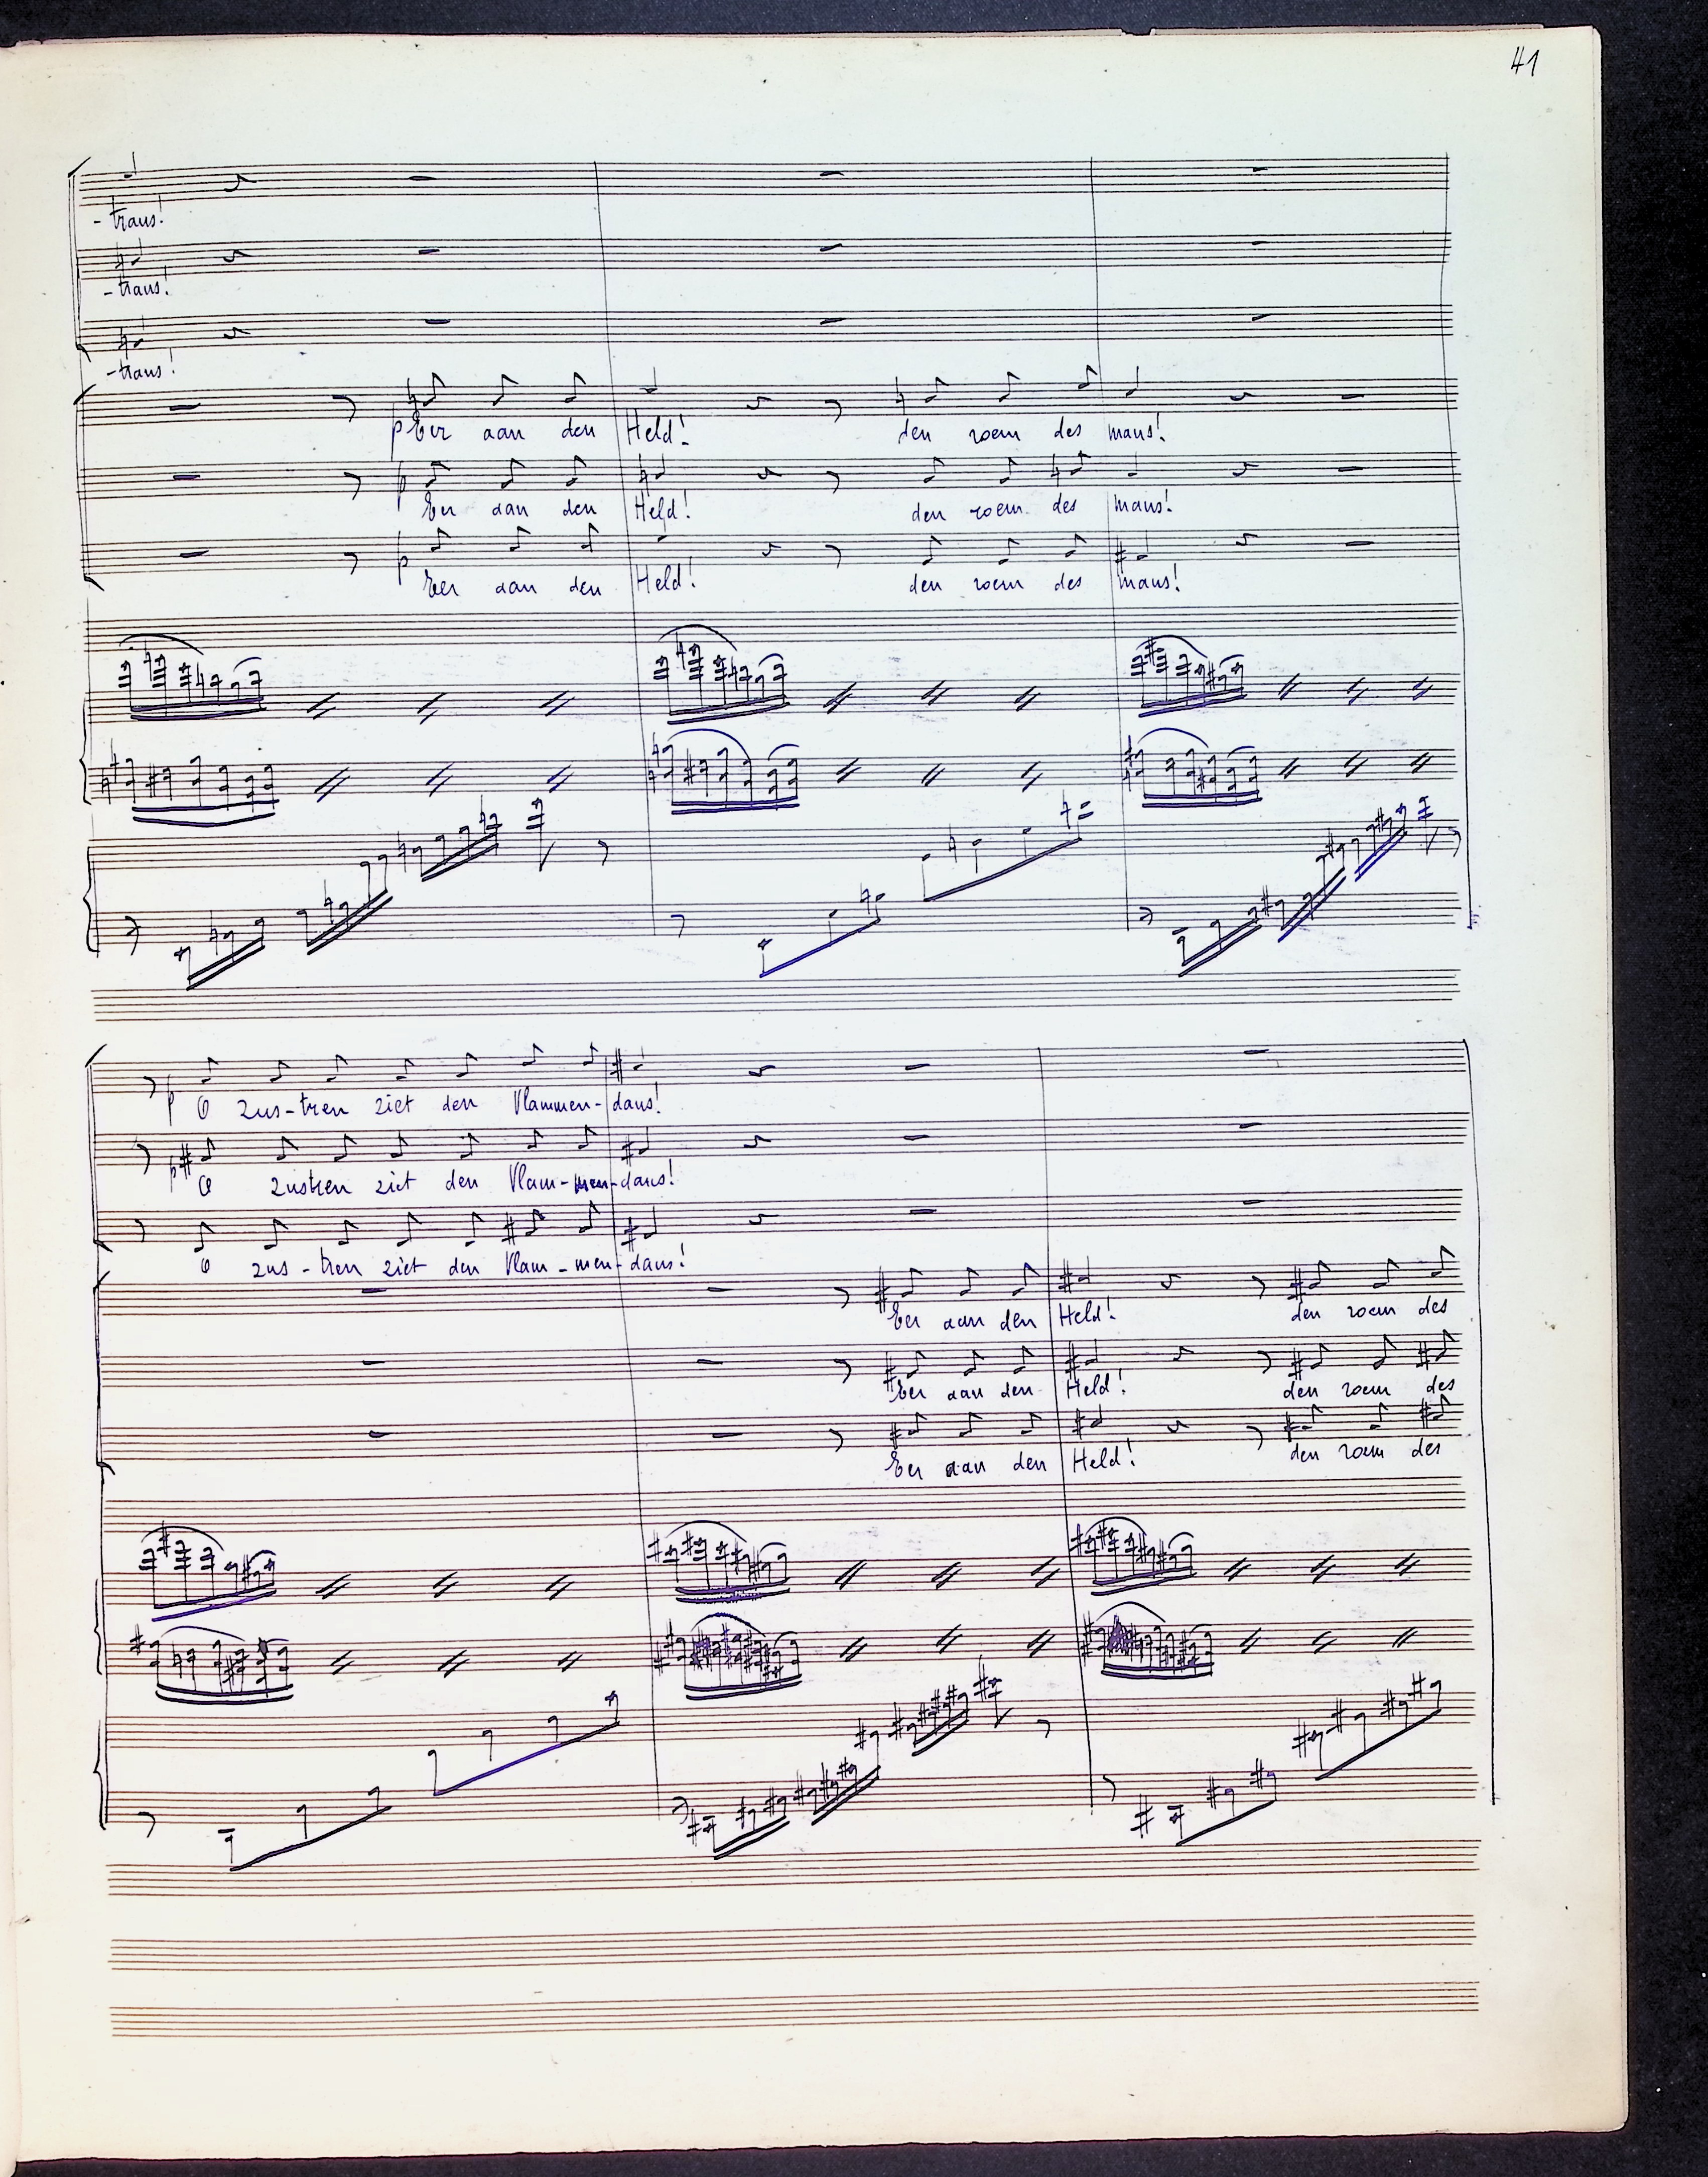 41
- trans!
- trans!
- trans!
p Eer aan den Held! den roem des mans!
p Eer aan den Held! den roem des mans!
p Eer aan den Held! den roem des mans!
p O zus-tren ziet den Vlammen-dans!
p O zustren ziet den Vlam-men-dans!
O zus-tren ziet den Vlam-men-dans!
Eer aan den Held! den roem des
Eer aan den Held! den roem des
Eer aan den Held! den roem des